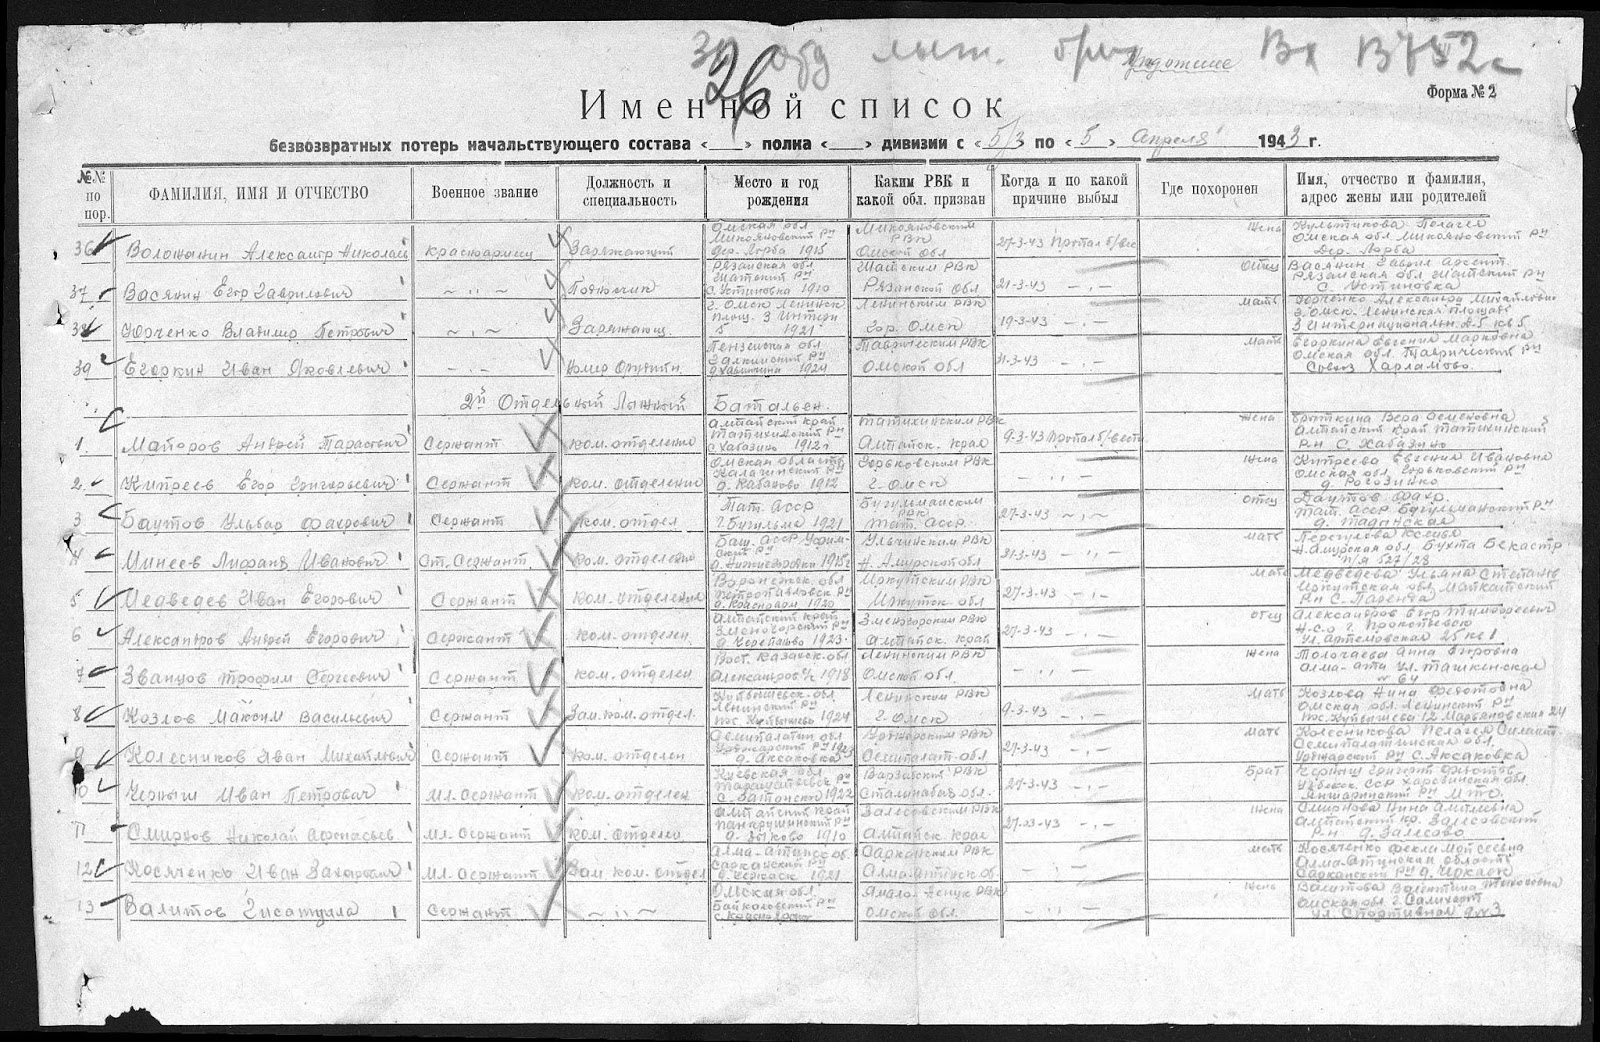 39 отд лыж. бриг Вх
26
Продолжение
Форма № 2
Именной список
безвозвратных потерь начальствующего состава « » полка « » дивизии с «5/3 по «5» апреля 1943 г.
№№ по пор. ФАМИЛИЯ, ИМЯ И ОТЧЕСТВО Военное звание Должность и специальность Место и год рождения Каким РВК и какой обл. призван Когда и по какой причине выбыл Где похоронен Имя, отчество и фамилия, адрес жены или родителей
36 Воложанин Александр Николаев красноармеец Заряжающий Омская обл Микояновский рн дер. Лорба 1915 Микояновским РВК Омской обл 27-3-43 Пропал б/вес жена Культикова Пелагея Омская обл Микояновский рн Дер. Лорба
37 Васянин Егор Гаврилович ~ „ ~ Подносчик Рязанская обл Шатский рн с. Устиновка 1910 Шатским РВК Рязанской обл 21-3-43 -„- Отец Васянин Гаврил Арсент. Рязанская обл Шатский рн с. Устиновка
38 Юрченко Владимир Петрович ~ „ ~ Заряжающ. г. Омск Ленинск. площ. 3 Интерн 5 1921 Ленинским РВК гор. Омск 19-3-43 -„- мать Юрченко Александра Михайловн г. Омск. Ленинская площадь 3 Интернациональн. д-5 кв 5
39 Егоркин Иван Яковлевич -„- Номер Орудийн. Пензенская обл 1924 Таврическим РВК Омской обл 31-3-43 -„- мать Егоркина Евгения Марковна Омская обл. Таврический рн Совхоз Харламово.
2й Отдельный Лыжный Батальон.
1. Майоров Андрей Тарасович Сержант ком. отделения Алтайский край с. Хабазино 1912 г РВК Алтайск. края 9-3-43 Пропал б/вести жена Вера Семеновна Алтайский край рн с. Хабазино
2. Кипреев Егор Григорьевич Сержант ком. отделения Омская область Калачинский рн д. Кабаково 1912 Горьковским РВК г. Омск -„- жена Кипреева Евгения Ивановна Омская обл. Горьковский рн д. Рогозино
3 Баутов Ульбар Фахрович Сержант ком. отдел Тат. АССР г. Бугульма 1921 Бугульманским РВК Тат. АССР 27-3-43 ~„~ отец Даутов Фахр. Тат. АССР Бугульманский рн
4 Минеев Лифаня Иванович Ст. Сержант ком. отделения Баш. АССР Уфимский рн 1915 г Ульчинским РВК Н. Амурской обл 31-3-43 -„- мать Н. Амурская обл. Бухта Декастр п/я 527/28
5 Медведев Иван Егорович Сержант ком. отделения Воронежск. обл Петропавловск рн 1920 Иркутским РВК Иркутск. обл 27-3-43 -„- Мать Медведева Ульяна Степанв Иркутская обл
6 Александров Андрей Егорович Сержант ком. отделен Алтайский край Змеиногорский рн д. Черепаново 1923 Змеиногорским РВК Алтайск. край 27-3-43 -„- отец Александров Егор Тимофеевич Н-с.о г. Прокопьевск ул. Артемовская 25 кв 1
7 Званцов Трофим Сергеевич Сержант ком. отделен Вост. Казахск. обл 1918 Ленинским РВК Омской обл. -„- жена Толочаева Анна Егоровна Алма-ата ул. Ташкенская № 64
8 Козлов Максим Васильевич Сержант Зам. ком. отдел. Куйбышевск. обл. Ленинский рн пос. Куйбышево 1924 Ленинским РВК г. Омск 9-3-43 -„- Мать Козлова Нина Федотовна Омская обл. Ленинский рн пос. Куйбышева 12 Марьяновская 24
9 Колесников Яван Михайлович Сержант ком. отделения Семипалатин обл Урджарский рн 1923 д. Аксаковка Урджарским РВК Семипалат. обл 27-3-43 -„- мать Колесникова Пелагея Силант. Семипалатинская обл. Урджарский рн с. Аксаковка
10 Черныш Иван Петрович Мл. Сержант ком. отделен Киевская обл с. Затонск 1922 РВК Сталинабад обл. 27-3-43 -„- Брат Черныш Григорий Узбекск. ССР
11 Смирнов Николай Афонасьев Мл. Сержант ком. отделен Алтайский край Панкрушинский рн д. Зыково 1910 Залесовским РВК Алтайск. края 27-3-43 -„- жена Смирнова Нина Алтайский кр. Залесовский рн д. Залесово
12 Косяченко Иван Захарович Мл. Сержант Зам ком. отдел Алма-атинск об. Сарканский рн д. Черкаск 1921 Сарканским РВК Алма-атинск об. - „ - мать Косяченко Фекла Мойсеевна Алма-Атинская область Сарканский рн д. Черкаск
13 Валитов Гисатулла Сержант ~ „ ~ Омская обл. Байкаловский рн Ямало-Ненецк РВК Омской обл. - „ - жена Валитова Валентина Тихоновна Омская обл. г. Салихард ул. Спортивная д № 3